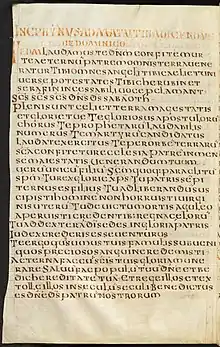 DIE DOMINICO
Te dm laudamus te dnm confitemur
Te aeternu patrem omnis terra uene
ratur Tibi omnes angeli tibi caeli et uni
uerse potestates Tibi cherubin et
serafin incessabili uoce proclamant
scs scs scs dns ds sabaoth
Pleni sunt celi et terra magestatis
et glorie tue Te gloriosus apostoloru
chorus Te prophetaru laudabilis
numerus Te martyru candidatus
laudat exercitus Te per orbe terraru
sca confitetur ecclesia patre in
mense maiestatis uenerandum tuum
ueru unicu filiu Scm quoq paraclitu
spm Tu rex glorie xps Tu patris sempi
ternus es filius Tu ad liberandu sus
cipisti hominem non horruisti uirgi
nis uteru Tu deuicto mortis aculeo
aperuisti credentib regna celoru
Tu ad dextera di sedes in gloria patris
Iudex crederis esse uenturus
Te ergo quesumus tuis famulis subueni
quos pretioso sanguine redemisti
Aeterna fac cu scis tuis gloria mune
rare Saluu fac populu tuu dne et be
dic hereditate tua Et rege illos et ex
tolle illos in seculu seculi Benedictus
es dne ds patru nostrorum